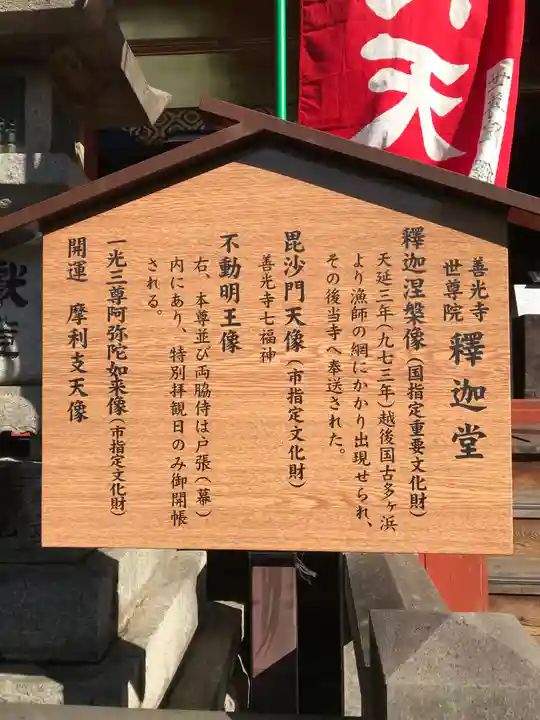 善光寺
世尊院 釋迦堂
釋迦涅槃像(国指定重要文化財)
天延三年(九七三年)越後国古多ヶ浜
より漁師の網にかかり出現せられ、
その後当寺へ奉送された。
毘沙門天像(市指定文化財)
善光寺七福神
不動明王像
右、本尊並び両脇侍は戸張(幕)
内にあり、特別拝観日のみ御開帳
される。
一光三尊阿弥陀如来像(市指定文化財)
開運 摩利支天像
天